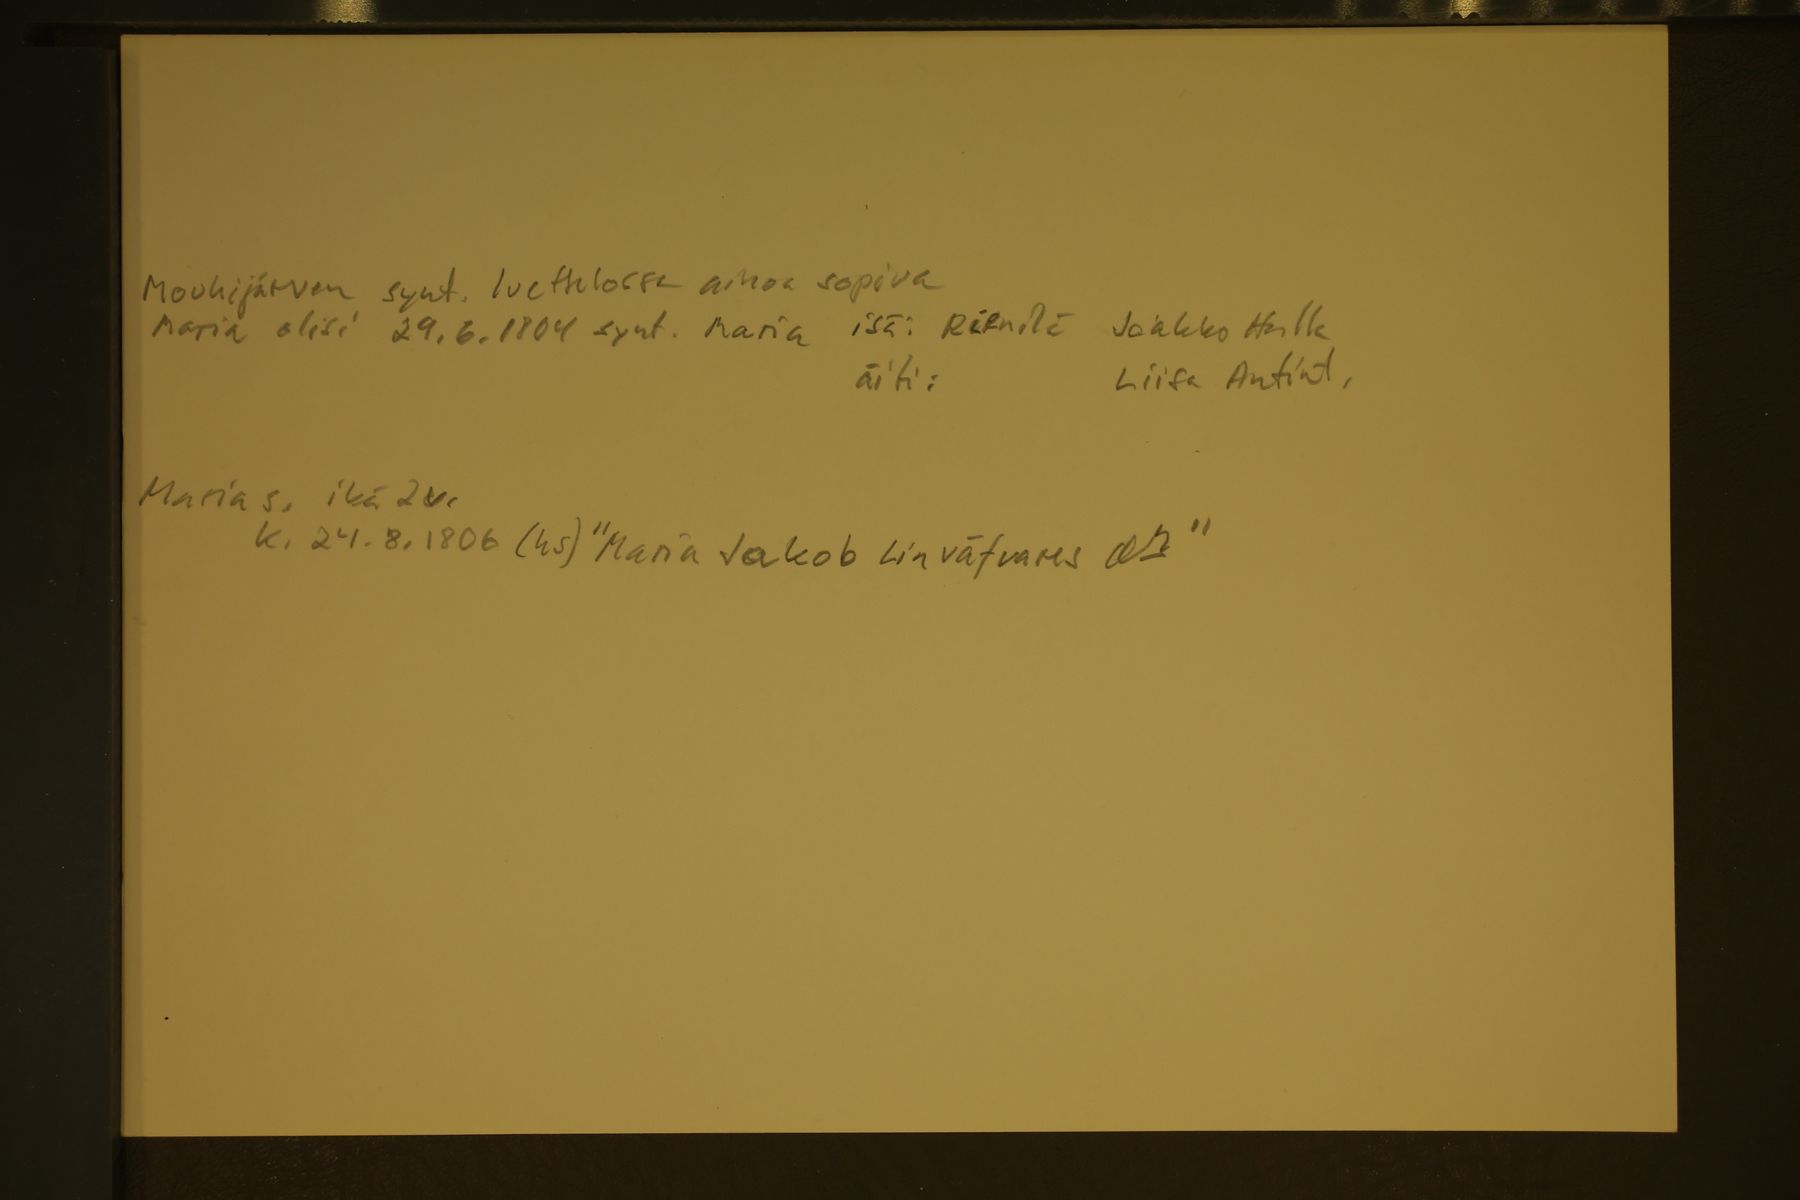 Mouhijärven synt. luettelossa ainoa sopiva
Maria olisi 29.6.1804 synt. Maria isä: Rienilä Jaakko Heikk
äiti: Liisa Antint.
Maria s. ikä 2v.
k. 24.8.1806 (hs) "Maria Jakob Linväfvares dr"